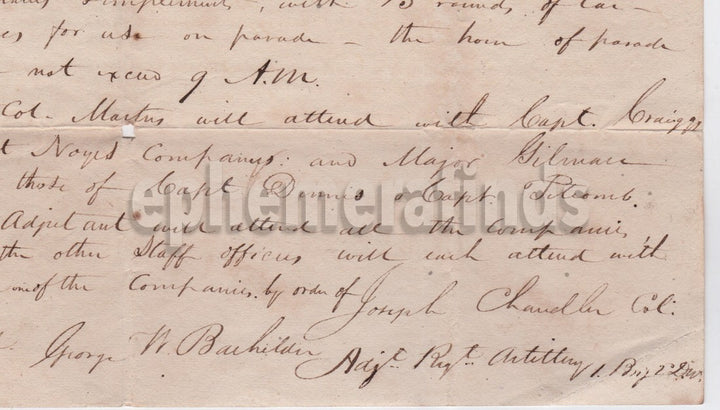 Implements, with 13 rounds of Car-
es for use on parade - the hour of parade
not exceed 9 A.M.
Col. Marten will attend with Capt. Craigg
Noyes Companies: and Major Gilman
those of Capt Dennis & Capt. Titcomb.
Adjutant will attend all the companies,
the other Staff officers will each attend with
one of the Companies. by order of
Joseph Chandler Col:
George W. Bachelder Adjt. Regt. Artillery 1. Brig 2 Div.
ephemerafinds